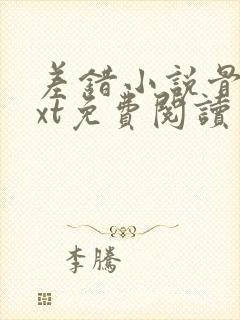 差錯小説骨
xt免費閱讀
李騰